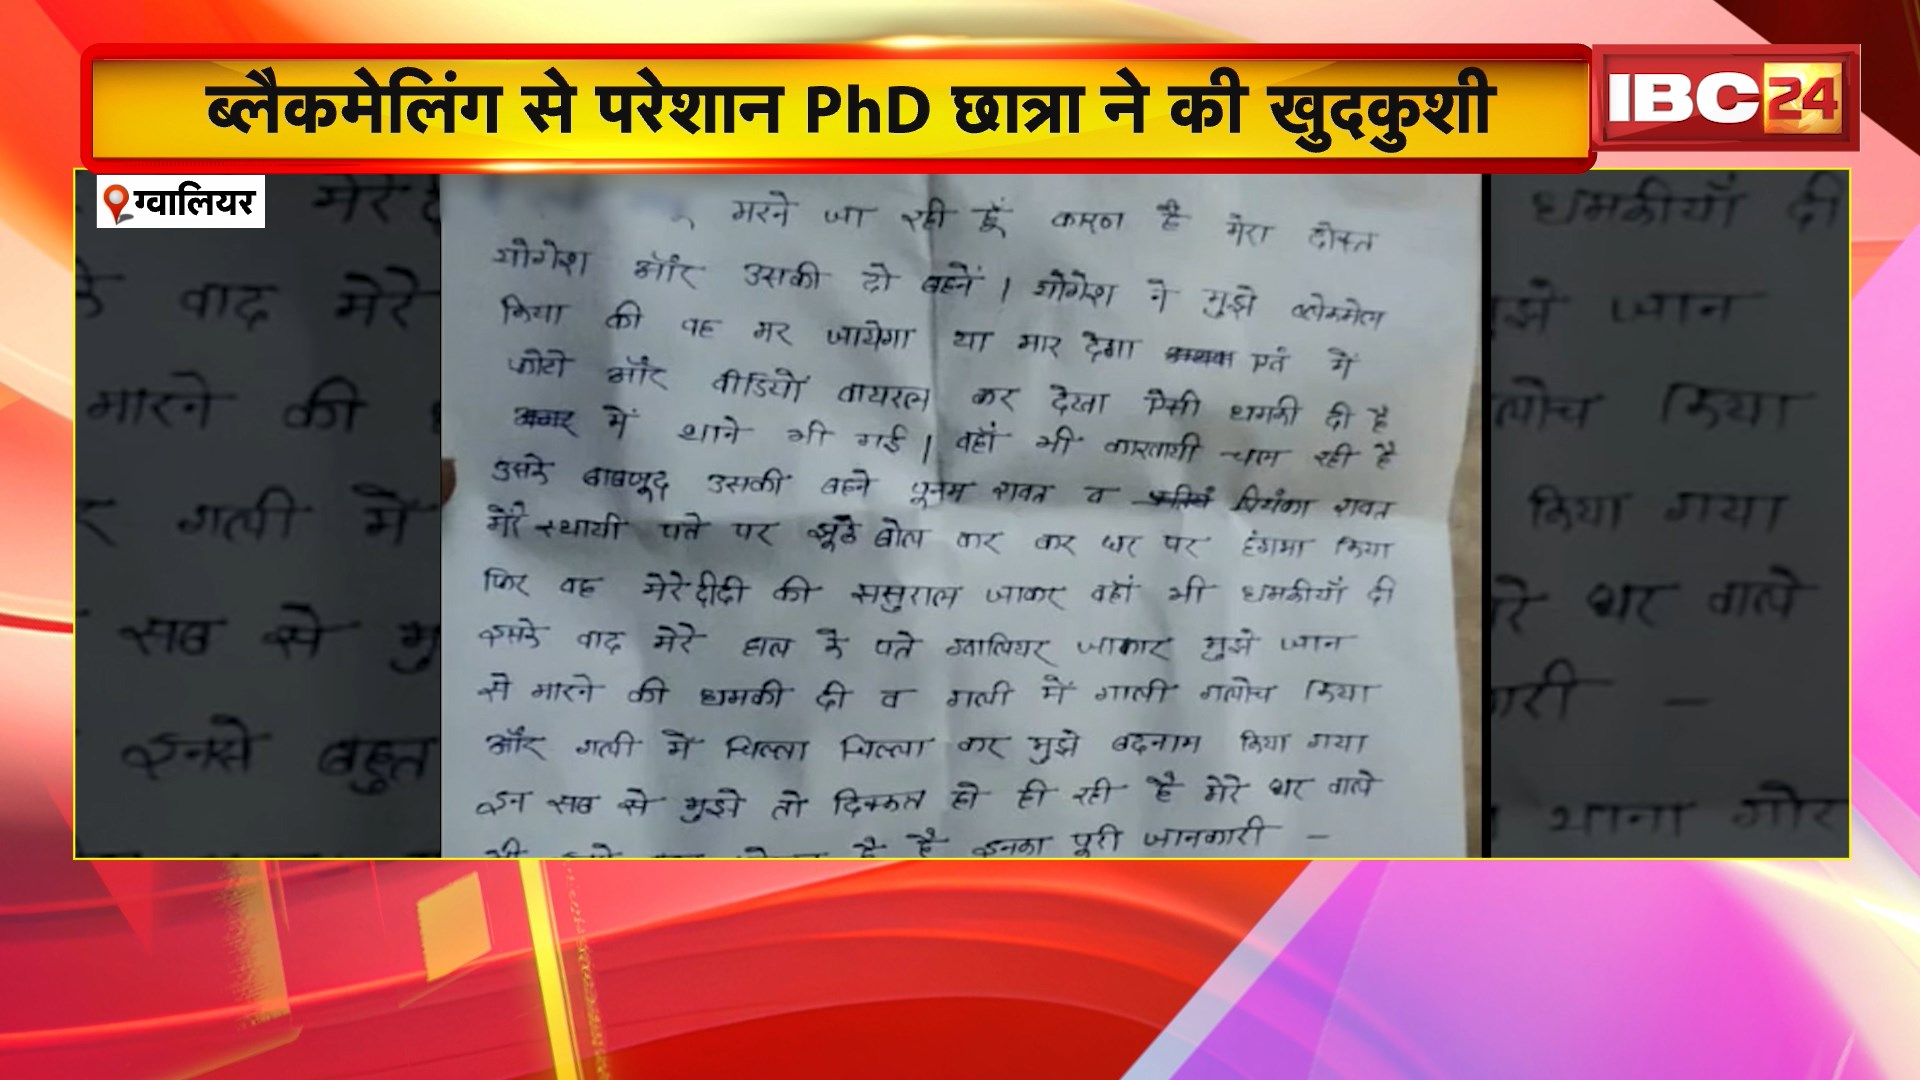 ब्लैकमेलिंग से परेशान PhD छात्रा ने की खुदकुशी
IBC24
ग्वालियर
मरने जा रही हूँ कारण है मेरा दोस्त
योगेश और उसकी दो बहनें । योगेश ने मुझे ब्लेकमेल
किया की वह मर जायेगा या मार देगा एवं में
फोटो और वीडियों वायरल कर देगा ऐसी धमकी दी है
में थाने भी गई । वहाँ भी कारवायी चल रही है
उसके बाबजूद उसकी बहने पूनम रावत व प्रियंका रावत
मेरे स्थायी पते पर झूठे बोल कर कर घर पर हंगमा किया
फिर वह मेरे दीदी की ससुराल जाकर वहाँ भी धमकीयाँ दी
इसके वाद मेरे हाल के पते ग्वालियर जाकार मुझे जान
से मारने की धमकी दी व गली में गाली गलोच किया
और गली में चिल्ला चिल्ला कर मुझे बदनाम किया गया
इन सब से मुझे तो दिक्कत हो ही रही है मेरे घर वाले
है है इनका पूरी जानकारी -
मेरे
के वाद मेरे
मारने की
र गली में
सब से मु
इनसे बहुत
धमकीयाँ दी
मुझे जान
गलोच किया
किया गया
मेरे घर वाले
कारी -
थाना गोर